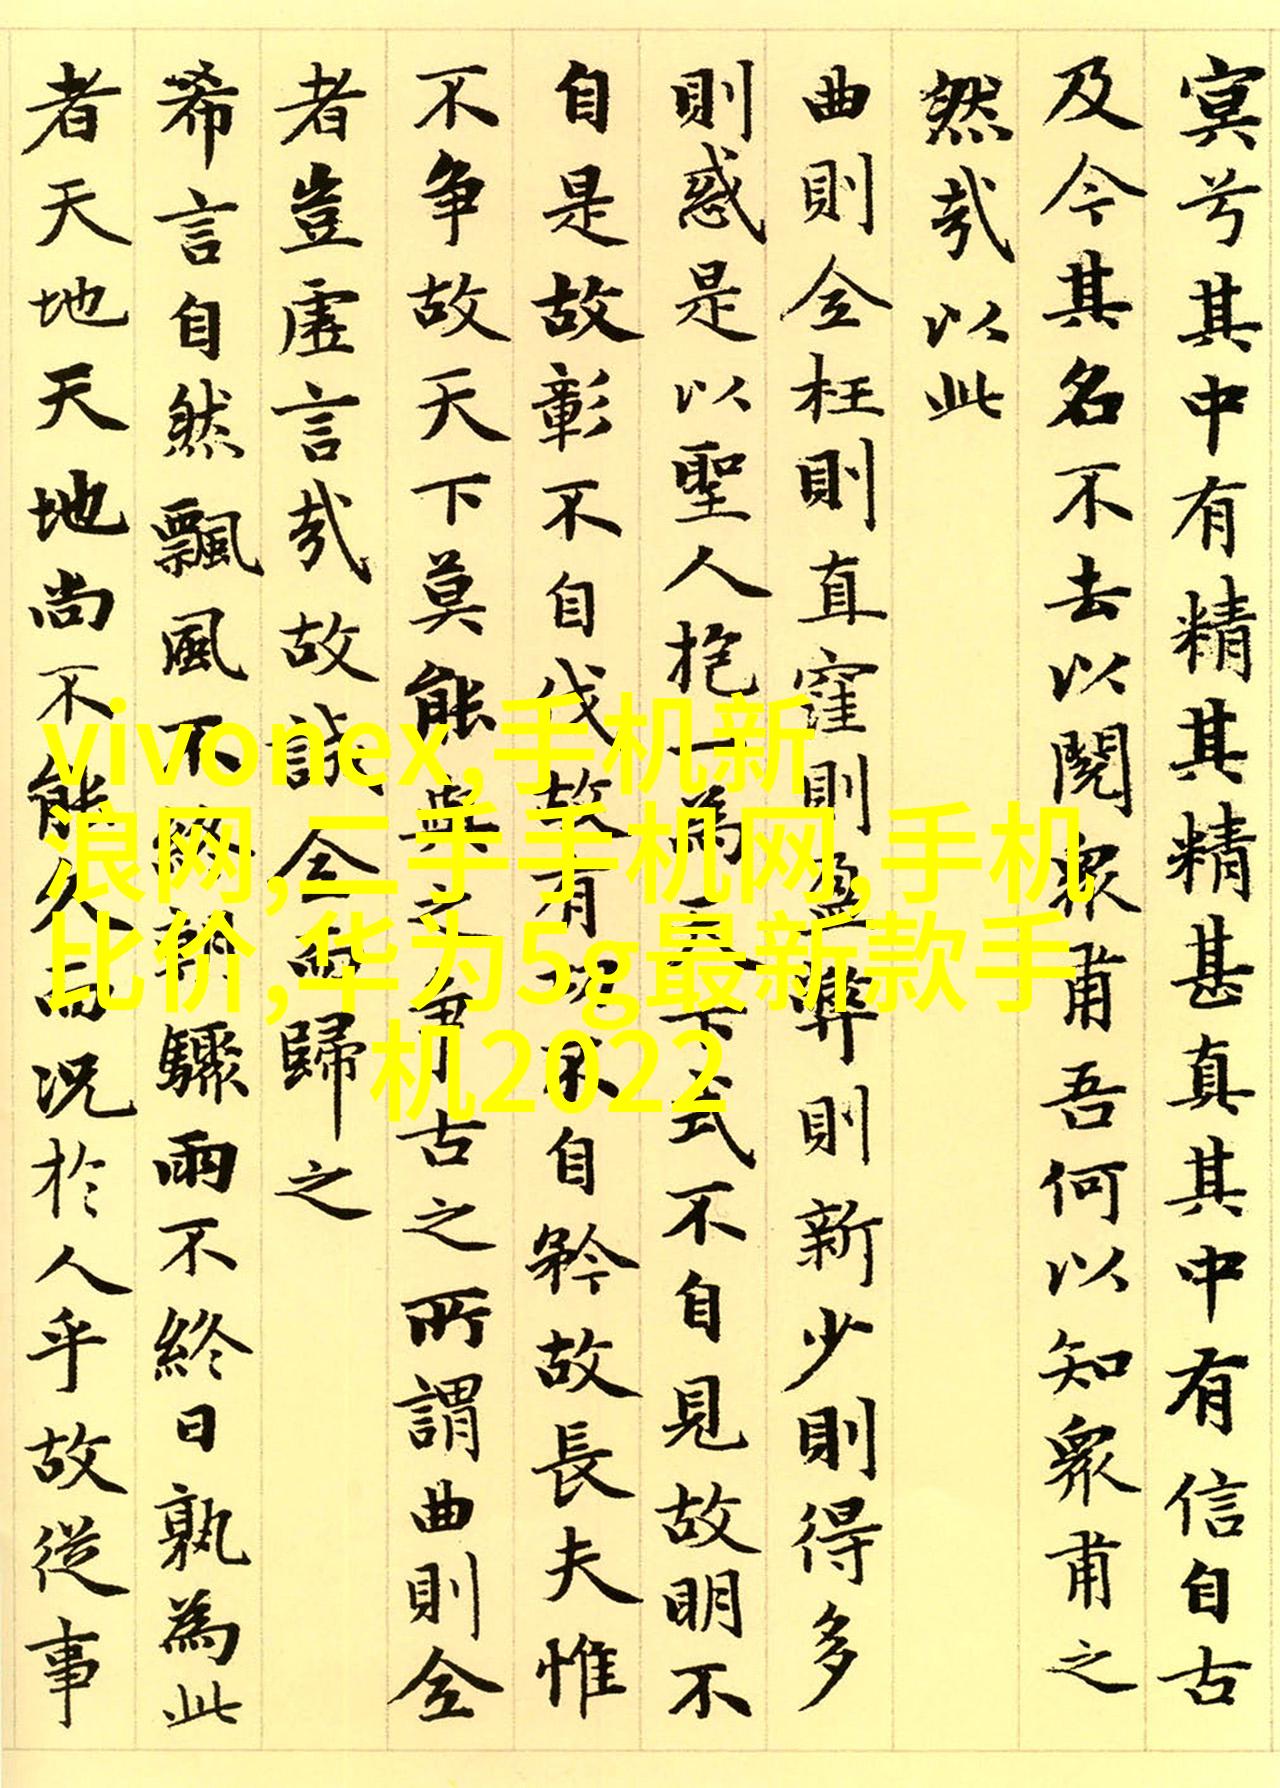 冥兮其中有精其精甚真其中有信自古
及今其名不去以閱衆甫吾何以知衆甫之
然哉以此
曲則全枉則直窪則盈弊則新少則得多
則惑是以聖人抱一為天下式不自見故明不
自是故彰不自伐故有功不自矜故長夫惟
不争故天下莫能與之争古之所謂曲則全
者豈虛言哉故誠全而歸之
希言自然飄風不終朝驟雨不終日孰為此
者天地天地尚不能久而况於人乎故從事
vivonex,手机新
浪网,二手手机网,手机
比价,华为5g最新款手
机2022